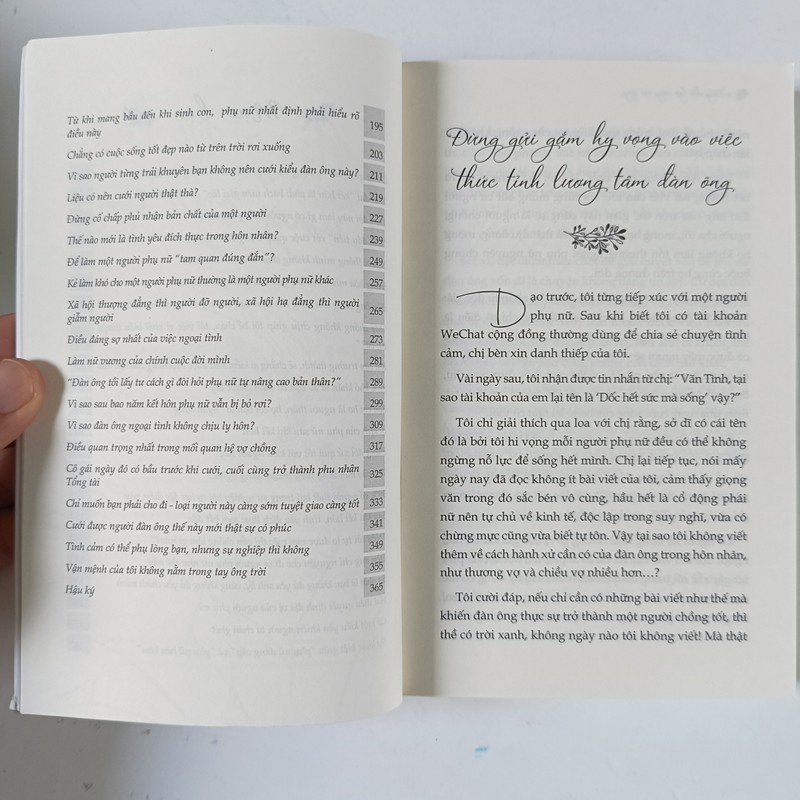 Từ khi mang bầu đến khi sinh con, phụ nữ nhất định phải hiểu rõ
điều này 195
Chẳng có cuộc sống tốt đẹp nào từ trên trời rơi xuống 203
Vì sao người từng trải khuyên bạn không nên cưới kiểu đàn ông này? 211
Liệu có nên cưới người thật thà? 219
Đừng cố chấp phủ nhận bản chất của một người 227
Thế nào mới là tình yêu đích thực trong hôn nhân? 239
Để làm một người phụ nữ "tam quan đúng đắn"? 249
Kẻ làm khó cho một người phụ nữ thường là một người phụ nữ khác 257
Xã hội thượng đẳng thì người đỡ người, xã hội hạ đẳng thì người
giẫm người 265
Điều đáng sợ nhất của việc ngoại tình 273
Làm nữ vương của chính cuộc đời mình 281
"Đàn ông tồi lấy tư cách gì đòi hỏi phụ nữ tự nâng cao bản thân?" 289
Vì sao sau bao năm kết hôn phụ nữ vẫn bị bỏ rơi? 299
Vì sao đàn ông ngoại tình không chịu ly hôn? 309
Điều quan trọng nhất trong mối quan hệ vợ chồng 317
Cô gái ngày đó có bầu trước khi cưới, cuối cùng trở thành phu nhân
Tổng tài 325
Chỉ muốn bạn phải cho đi - loại người này càng sớm tuyệt giao càng tốt 333
Cưới được người đàn ông thế này mới thật sự có phúc 341
Tình cảm có thể phụ lòng bạn, nhưng sự nghiệp thì không 349
Vận mệnh của tôi không nằm trong tay ông trời 355
Hậu ký 365
Đừng gửi gắm hy vọng vào việc
thức tỉnh lương tâm đàn ông
Dạo trước, tôi từng tiếp xúc với một người
phụ nữ. Sau khi biết tôi có tài khoản
WeChat cộng đồng thường dùng để chia sẻ chuyện tình
cảm, chị bèn xin danh thiếp của tôi.
Vài ngày sau, tôi nhận được tin nhắn từ chị: "Vãn Tình, tại
sao tài khoản của em lại tên là 'Dốc hết sức mà sống' vậy?"
Tôi chỉ giải thích qua loa với chị rằng, sở dĩ có cái tên
đó là bởi tôi hi vọng mỗi người phụ nữ đều có thể không
ngừng nỗ lực để sống hết mình. Chị lại tiếp tục, nói mấy
ngày nay đã đọc không ít bài viết của tôi, cảm thấy giọng
văn trong đó sắc bén vô cùng, hầu hết là cổ động phái
nữ nên tự chủ về kinh tế, độc lập trong suy nghĩ, vừa có
chừng mực cũng vừa biết tự tôn. Vậy tại sao tôi không viết
thêm về cách hành xử cần có của đàn ông trong hôn nhân,
như thương vợ và chiều vợ nhiều hơn...?
Tôi cười đáp, nếu chỉ cần có những bài viết như thế mà
khiến đàn ông thực sự trở thành một người chồng tốt, thì
thề có trời xanh, không ngày nào tôi không viết! Mà thật